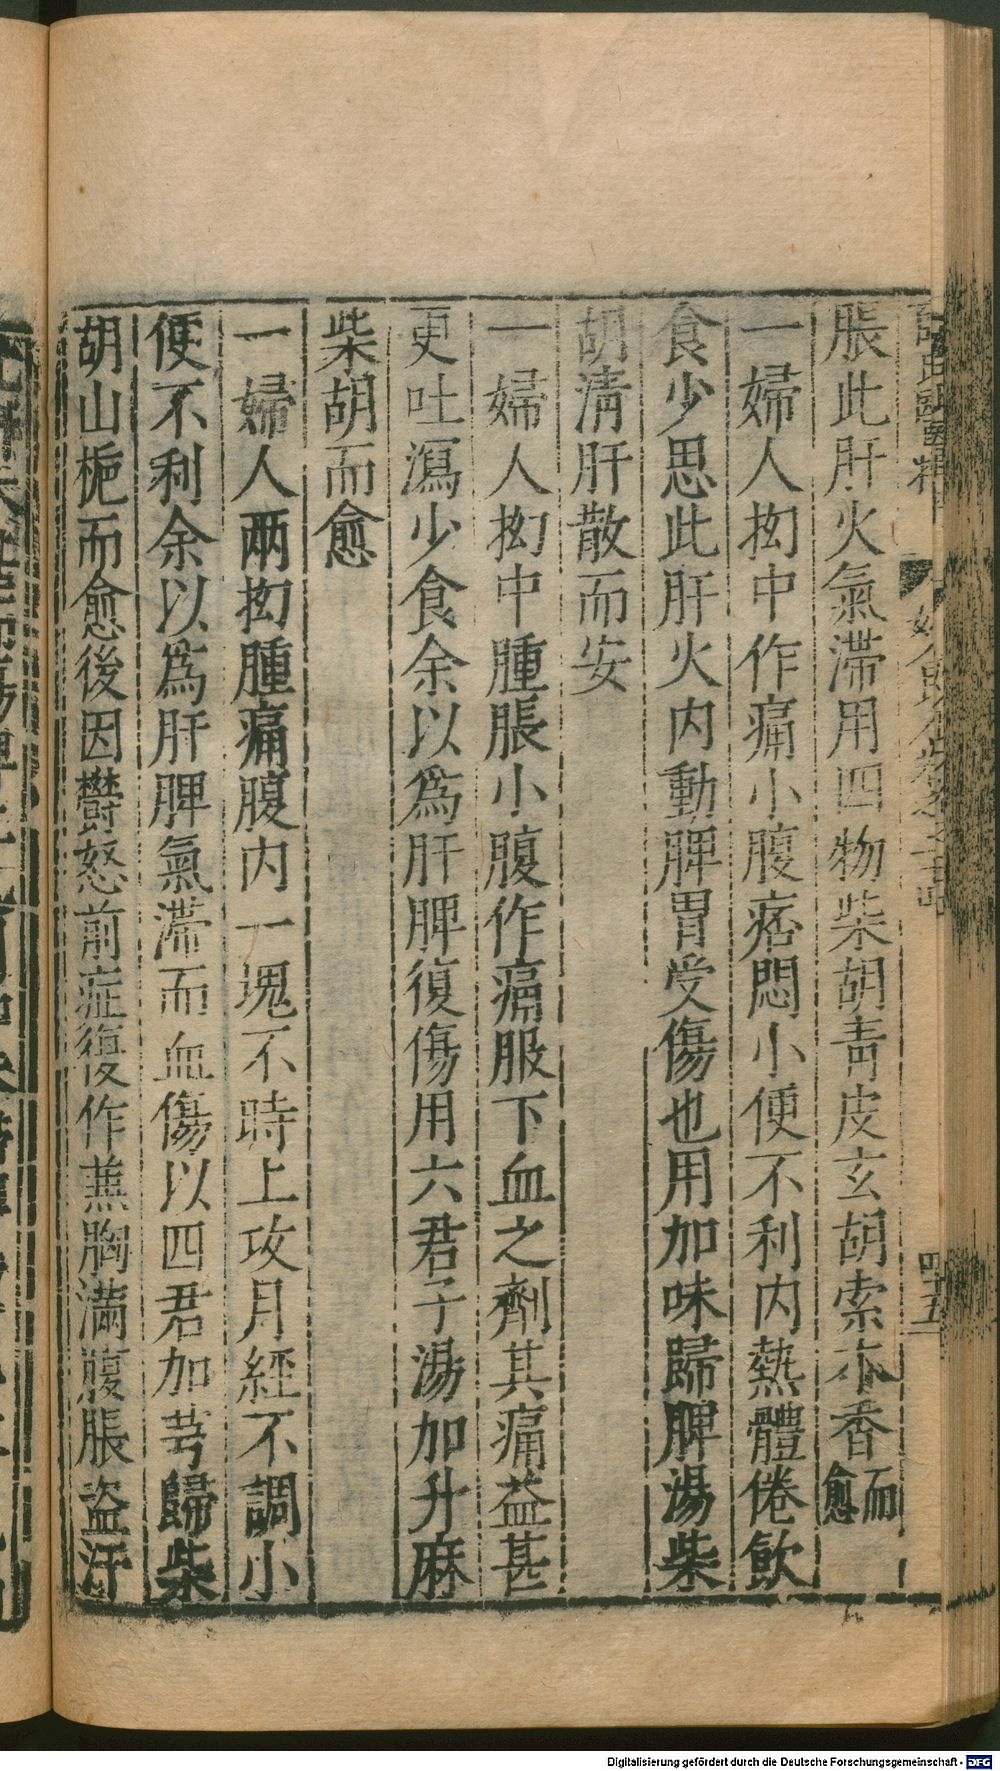 脹此肝火氣滯用四物柴胡靑皮玄胡索木香而愈
一婦人抝中作痛小腹痞悶小便不利内熱體倦飲
食少思此肝火内動脾胃受傷也用加味歸脾湯柴
胡淸肝散而安
一婦人抝中腫脹小腹作痛服下血之劑其痛益甚
更吐瀉少食余以爲肝脾復傷用六君子湯加升麻
柴胡而愈
一婦人兩抝腫痛腹内一塊不時上攻月經不調小
便不利余以爲肝脾氣滯而血傷以四君加芎歸柴
胡山梔而愈後因欝怒前症復作兼胸滿腹脹盜汗
四十五
Digitalisierung gefördert durch die Deutsche Forschungsgemeinschaft - DFG